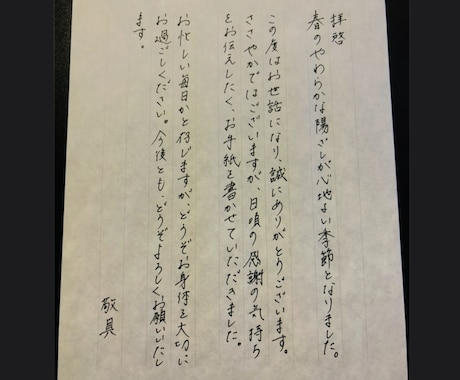 拝啓
春のやわらかな陽ざしが心地よい季節となりました。
この度はお世話になり、誠にありがとうございます。
ささやかではございますが、日頃の感謝の気持ち
をお伝えしたく、お手紙を書かせていただきました。
お忙しい毎日かと存じますが、どうぞお身体を大切に
お過ごしください。今後とも、どうぞよろしくお願いいたし
ます。
敬具